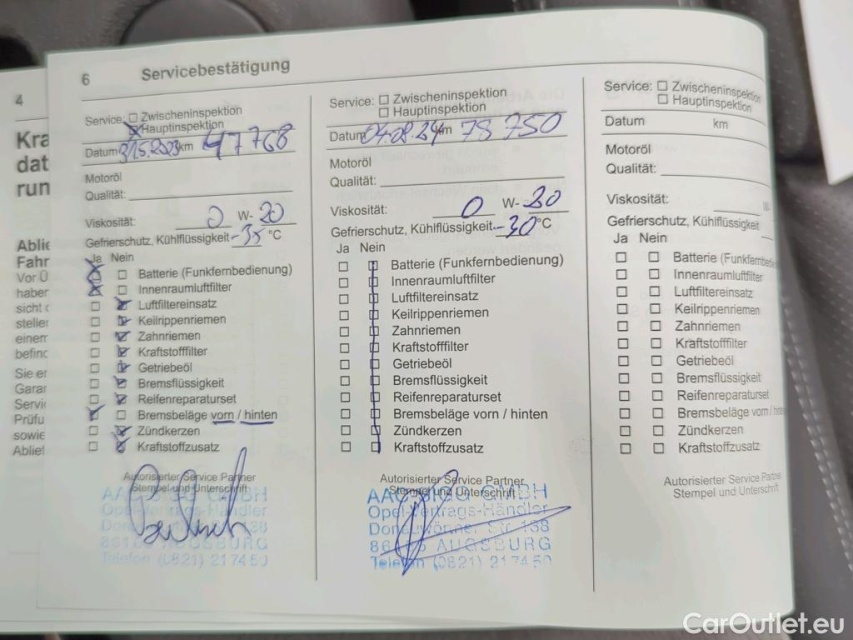 4
Kra
dat
run
Ablie
Fahr
Vor Ü
haber
sicht
stelle
einem
befind
Sie er
Garar
Servi
Prüfu
sowie
Ablief
6 Servicebestätigung
Service: Zwischeninspektion
Hauptinspektion
Datum km 47768
Motoröl
Qualität:
Viskosität: 0 W-20
Gefrierschutz, Kühlflüssigkeit -35 °C
Ja Nein
Batterie (Funkfernbedienung)
Innenraumluftfilter
Luftfiltereinsatz
Keilrippenriemen
Zahnriemen
Kraftstofffilter
Getriebeöl
Bremsflüssigkeit
Reifenreparaturset
Bremsbeläge vorn / hinten
Zündkerzen
Kraftstoffzusatz
Autorisierter Service Partner
Stempel und Unterschrift
Opel-Vertrags-Händler
AUGSBURG
Telefon (0821) 21 74 50
Service: Zwischeninspektion
Hauptinspektion
Datum 04.08.24 km 78 750
Motoröl
Qualität:
Viskosität: 0 W-20
Gefrierschutz, Kühlflüssigkeit -30 °C
Ja Nein
Batterie (Funkfernbedienung)
Innenraumluftfilter
Luftfiltereinsatz
Keilrippenriemen
Zahnriemen
Kraftstofffilter
Getriebeöl
Bremsflüssigkeit
Reifenreparaturset
Bremsbeläge vorn / hinten
Zündkerzen
Kraftstoffzusatz
Autorisierter Service Partner
Stempel und Unterschrift
GMBH
Opel-Vertrags-Händler
Donauwörther Str. 138
AUGSBURG
Telefon (0821) 21 74 50
Service: Zwischeninspektion
Hauptinspektion
Datum km
Motoröl
Qualität:
Viskosität: W-
Gefrierschutz, Kühlflüssigkeit
Ja Nein
Batterie (Funkfernbedie
Innenraumluftfilter
Luftfiltereinsatz
Keilrippenriemen
Zahnriemen
Kraftstofffilter
Getriebeöl
Bremsflüssigkeit
Reifenreparaturset
Bremsbeläge vorn / hinten
Zündkerzen
Kraftstoffzusatz
Autorisierter Service Partne
Stempel und Unterschrift
CarOutlet.eu